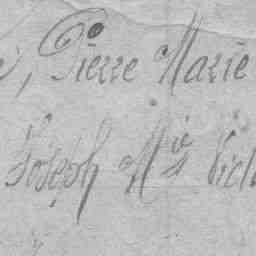 , Pierre Marie
Joseph Mie Vict